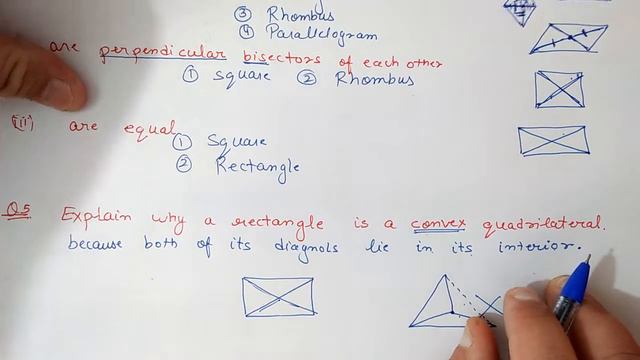 ③ Rhombus
④ Parallelogram
are perpendicular bisectors of each other
① square ② Rhombus
(iii) are equal
① Square
② Rectangle
Q5 Explain why a rectangle is a convex quadrilateral.
because both of its diagnols lie in its interior.